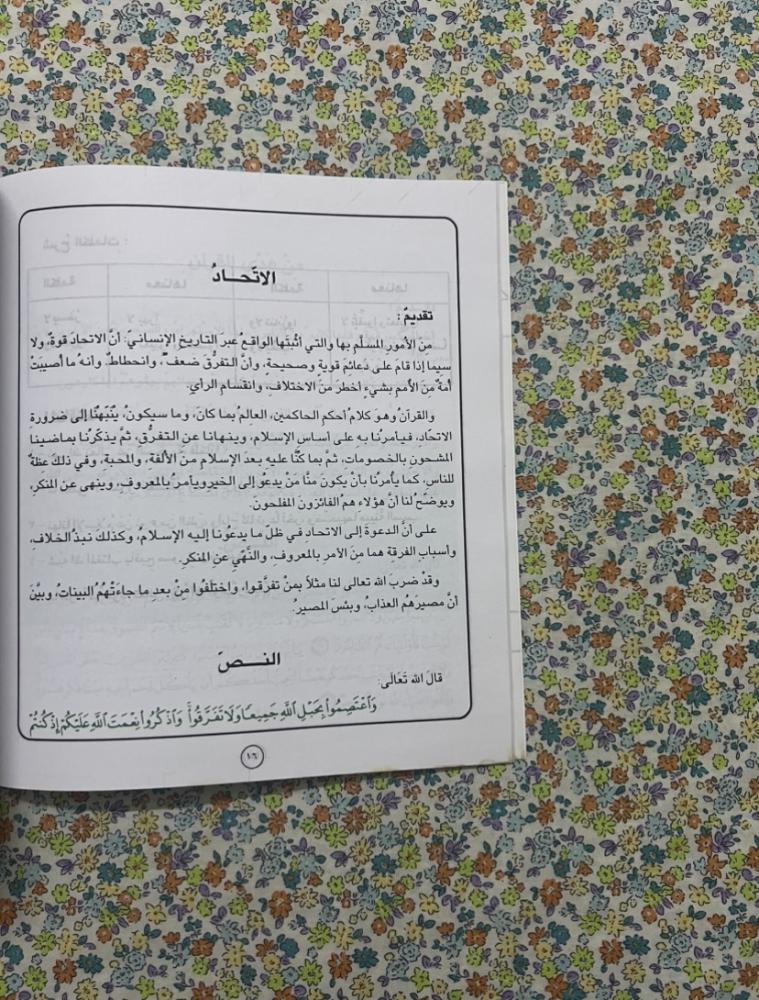 الاتّحــادُ
تقديمٌ :
منَ الأمورِ المسلَّمِ بها والتي أثبتَها الواقعُ عبرَ التاريخِ الإنسانيّ: أنَّ الاتحادَ قوةٌ، ولا
سيما إذا قامَ على دعائمَ قويةٍ وصحيحةٍ، وأنَّ التفرّقَ ضعفٌ، وانحطاطٌ. وانهُ ما أصيبَتْ
أمةٌ منَ الأممِ بشيءٍ أخطرَ منَ الاختلافِ، وانقسامِ الرأي.
والقرآنُ وهوَ كلامُ أحكمِ الحاكمين، العالمُ بما كانَ، وما سيكونُ، ينّبهُنا إلى ضرورةِ
الاتحادِ، فيأمرُنا به على أساسِ الإسلام، وينهانا عن التفرّقِ، ثمَّ يذكّرُنا بماضينا
المشحونِ بالخصوماتِ، ثمَّ بما كنَّا عليه بعدَ الإسلامِ منَ الألفةِ، والمحبةِ، وفي ذلكَ عظةٌ
للناسِ، كما يأمرُنا بأن يكونَ منَّا مَنْ يدعوُ إلى الخيرويأمرُ بالمعروفِ، وينهى عن المنكرِ،
ويوضّحُ لنا أنَّ هؤلاء همُ الفائزونَ المفلحونَ.
على أنَّ الدعوةَ إلى الاتحادِ في ظلّ ما يدعوُنا إليه الإسلامُ، وكذلكَ نبذُ الخلافِ،
وأسبابِ الفرقةِ هما منَ الأمرِ بالمعروفِ، والنَّهْيِ عن المنكرِ.
وقدْ ضربَ الله تعالى لنا مثلاً بمنْ تفرّقوا، واختلفُوا مِنْ بعدِ ما جاءَتْهُمُ البيناتُ، وبيَّنَ
أنَّ مصيرَهُم العذابُ، وبئسَ المصيرُ.
النــصَ
قالَ الله تَعَالَى:
وَاَعْتَصِمُواْ بِحَبْلِ اَللَّهِ جَمِيعًا وَلَا تَفَرَّقُواْ وَاَذْكُرُواْ نِعْمَتَ اَللَّهِ عَلَيْكُمْ إِذْ كُنتُمْ
١٦